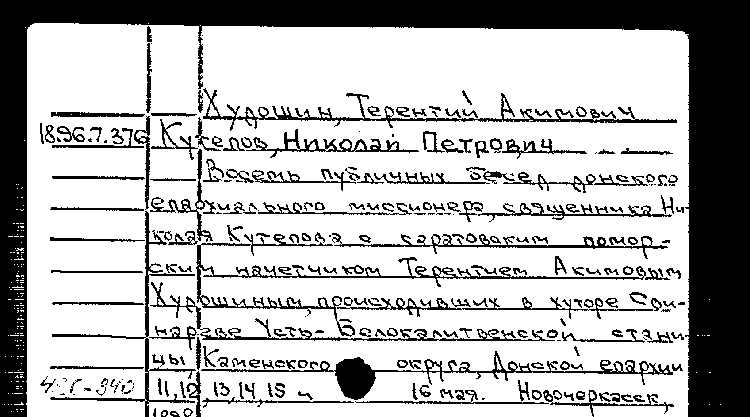 Худошин, Терентий Акимович
1896.7.376 Кутепов, Николай Петрович
Восемь публичных бесед донского
епархиального миссионера, священника Ни-
колая Кутепова с саратовским помор-
ским начетчиком Терентием Акимовым
Худошиным, происходивших в хуторе Сви-
нареве Усть-Белокалитвенской стани-
цы Каменского округа, Донской епархии
11, 12, 13, 14, 15 и 16 мая. Новочеркасск,